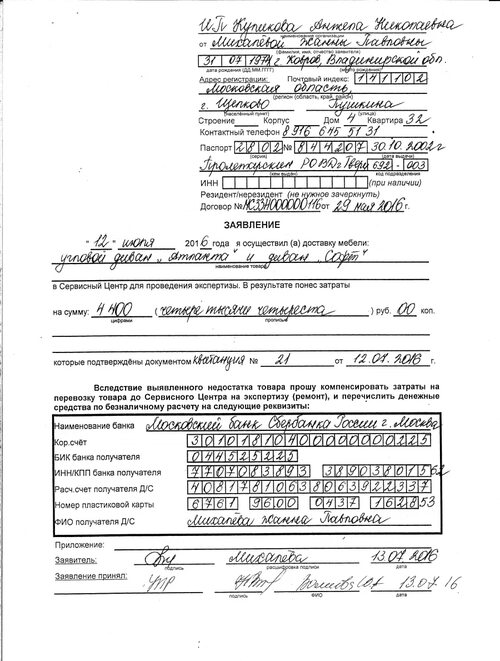 ИП Куликова Анжела Николаевна
наименование организации
от Михалёвой Жанны Павловны
(фамилия, имя, отчество заявителя)
31 07 1974 г. Ковров, Владимирской обл.
дата рождения (ДД.ММ.ГГГГ) (место рождения)
Адрес регистрации: Почтовый индекс: 141102
Московская область,
регион (область, край, район)
г. Щелково Пушкина
(населённый пункт) (улица)
Строение Корпус Дом 4 Квартира 32
Контактный телефон 8 916 645 51 31
Паспорт 2802 № 844207 30.10.2002 г
(серия) (дата выдачи)
Пролетарским РОВД г. Твери 692 - 003
(кем выдан) код подразделения
ИНН (при наличии)
Резидент/нерезидент (не нужное зачеркнуть)
Договор № МСЗЗН000000116 от 29 мая 2016 г.
ЗАЯВЛЕНИЕ
" 12 " июля 2016 года я осуществил (а) доставку мебели:
угловой диван "Атланта" и диван "Софт"
наименование товара
в Сервисный Центр для проведения экспертизы. В результате понес затраты
на сумму: 4 400 ( четыре тысячи четыреста ) руб. 00 коп.
цифрами прописью
которые подтверждёны документом квитанция № 21 от 12.07.2016 г.
Вследствие выявленного недостатка товара прошу компенсировать затраты на
перевозку товара до Сервисного Центра на экспертизу (ремонт), и перечислить денежные
средства по безналичному расчету на следующие реквизиты:
Наименование банка Московский банк Сбербанка России г. Москва
Кор.счёт 30101810400000000225
БИК банка получателя 044525225
ИНН/КПП банка получателя 7707083893 38903801552
Расч.счет получателя Д/С 40817810638063922337
Номер пластиковой карты 6761 9600 0437 162853
ФИО получателя Д/С Михалёва Жанна Павловна
Приложение:
Заявитель: Михалёва 13.07.2016
подпись расшифровка подписи дата
Заявление принял: УПР 13.07.16
подпись ФИО дата